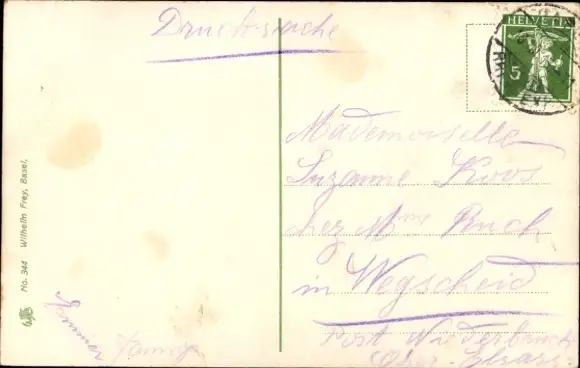 Drucksache
HELVETIA
5
Mademoiselle
Suzanne Koos
chez Mme Ruch
in Wegscheid
Post Niederbruck
Ober-Elsass
No. 344 Wilhelm Frey, Basel.